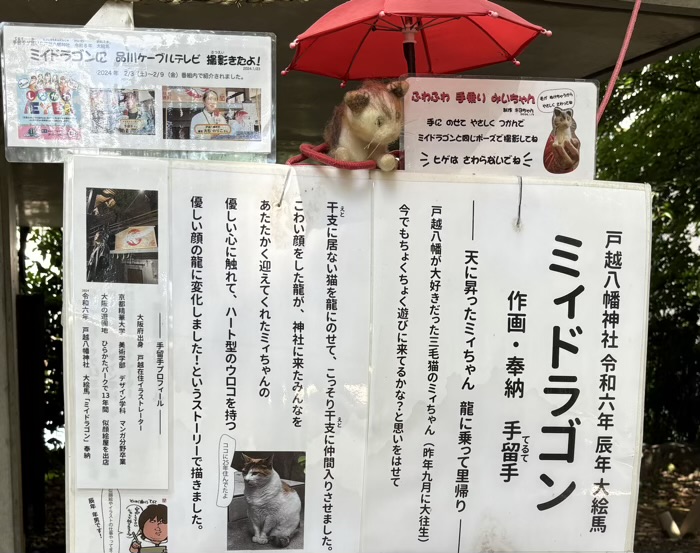 ミイドラゴンに 品川ケーブルテレビ 撮影きたよ!
2024年 2/3(土)~2/9(金) 番組内で紹介されました。
ふわふわ 手乗り みいちゃん
手に のせて やさしく つかんで
ミイドラゴンと同じポーズで撮影してね
ヒゲは さわらないでね
戸越八幡神社 令和六年 辰年 大絵馬
ミイドラゴン
作画・奉納 手留手
てるて
── 天に昇ったミィちゃん 龍に乗って里帰り ──
戸越八幡が大好きだった三毛猫のミィちゃん(昨年九月に大往生)
今でもちょくちょく遊びに来てるかな?と思いをはせて
干支に居ない猫を龍にのせて、こっそり干支に仲間入りさせました。
えと
えと
こわい顔をした龍が、神社に来たみんなを
あたたかく迎えてくれたミィちゃんの
優しい心に触れて、ハート型のウロコを持つ
優しい顔の龍に変化しました!というストーリーで描きました。
ココに20年住んでたよ
── 手留手プロフィール ──
大阪府出身 戸越在住イラストレーター
京都精華大学 美術学部 デザイン学科 マンガ分野卒業
大阪の遊園地 ひらかたパークで13年間 似顔絵屋を出店
令和六年 戸越八幡神社 大絵馬「ミイドラゴン」奉納
辰年 年男です!